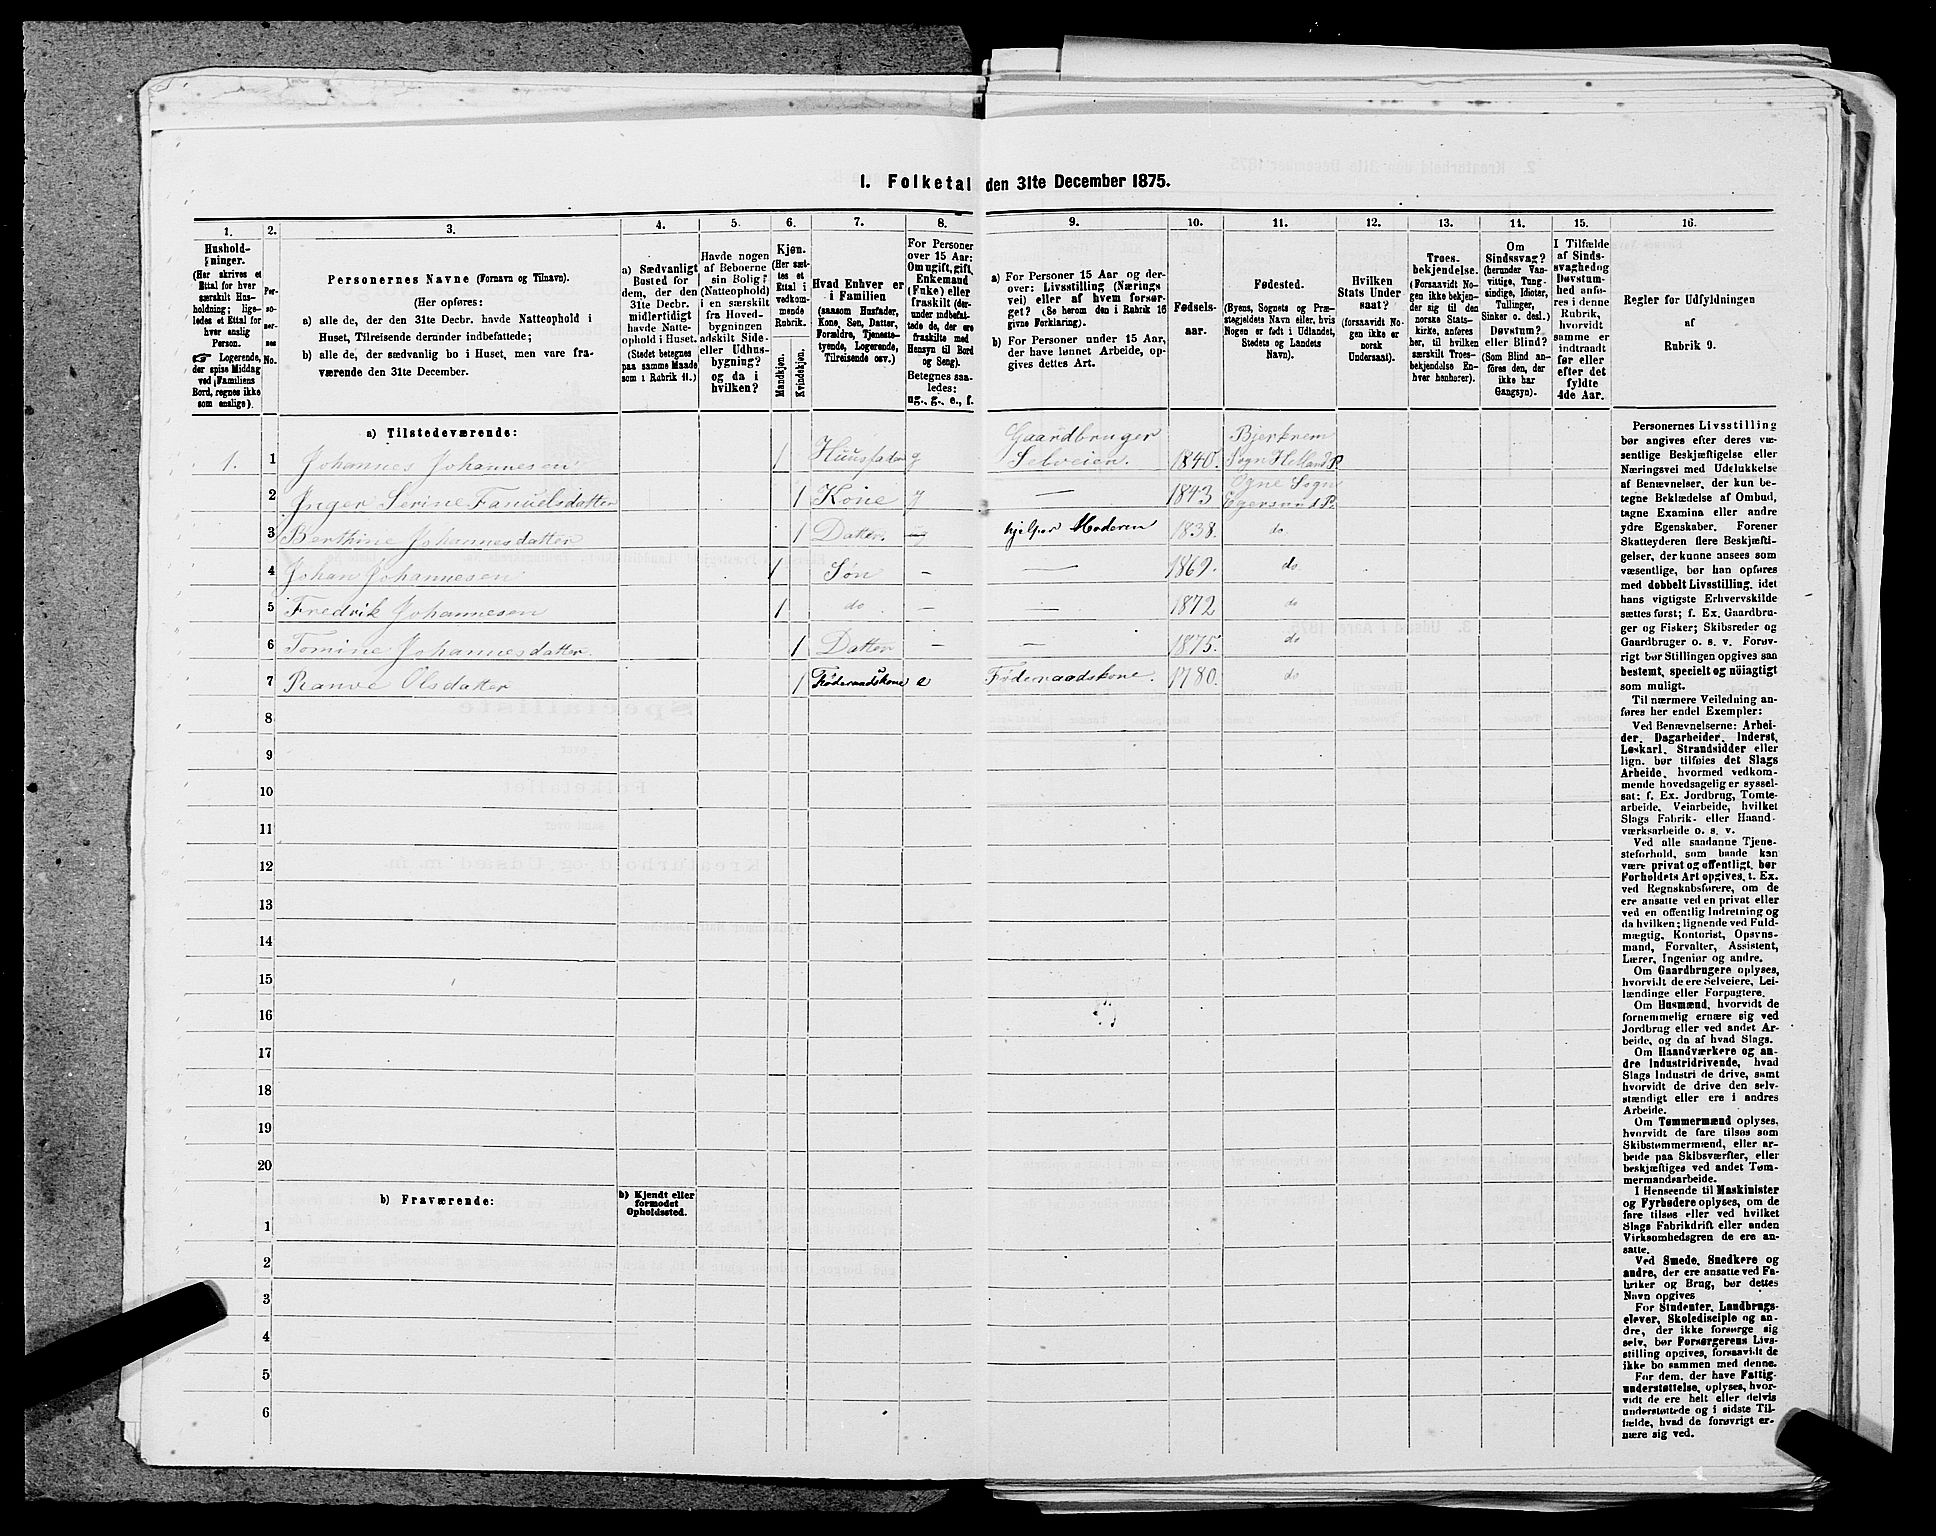 1. Folketal den 31te December 1875.
1.
2.
3.
4.
5.
6.
7.
8.
9.
10.
11.
12.
13.
14.
15.
16.
Hushold-
ninger.
(Her skrives et
Ettal for hver
særskilt Hus-
holdning; lige-
ledes et Ettal for
hver enslig
Person.
☞ Logerende,
der spise Middag
ved Familiens
Bord, regnes ikke
som enslige).
Per-
so-
ner-
nes
No.
Personernes Navne (Fornavn og Tilnavn).
(Her opføres:
a) alle de, der den 31te Decbr. havde Natteophold i
Huset, Tilreisende derunder indbefattede;
b) alle de, der sædvanlig bo i Huset, men vare fra-
værende den 31te December.
a) Sædvanligt
Bosted for
dem, der den
31te Decbr.
midlertidigt
havde Natte-
ophold i Huset.
(Stedet betegnes
paa samme Maade
som i Rubrik 11.)
Havde nogen
af Beboerne
sin Bolig?
(Natteophold)
i en særskilt
fra Hoved-
bygningen
adskilt Side-
eller Udhus-
bygning?
og da i
hvilken?
Kjøn.
(Her sæt-
tes et
Ettal i
vedkom-
mende
Rubrik.
Mandkjøn.
Kvindekjøn.
Hvad Enhver er
i Familien
(saasom Husfader,
Kone, Søn, Datter,
Forældre, Tjeneste-
tyende, Logerende,
Tilreisende osv.)
For Personer
over 15 Aar:
Om ugift, gift,
Enkemand
(Enke) eller
fraskilt (der-
under indbefat-
tede de, der ere
fraskilte med
Hensyn til Bord
og Seng).
Betegnes saa-
ledes:
ug., g., e., f.
a) For Personer 15 Aar og der-
over: Livsstilling (Nærings
vei) eller af hvem forsør-
get? (Se herom den i Rubrik 16
givne Forklaring).
b) For Personer under 15 Aar,
der have lønnet Arbeide, op-
gives dettes Art.
Fødsels-
aar.
Fødested.
(Byens, Sognets og Præ-
stegjeldets Navn eller, hvis
Nogen er født i Udlandet,
Stedets og Landets
Navn).
Hvilken
Stats Under
saat?
(forsaavidt No-
gen ikke er
norsk
Undersaat).
Troes-
bekjendelse.
(Forsaavidt No-
gen ikke bekjen-
der sig til den
norske Stats-
kirke, anføres
her, til hvilken
særskilt Troes-
bekjendelse En-
hver henhører).
Om
Sindssvag?
(herunder Van-
vittige, Tung-
sindige, Idioter,
Tullinger,
Sinker o. desl.)
Døvstum?
eller Blind?
(Som Blind an-
føres den, der
ikke har
Gangsyn).
I Tilfælde
af Sinds-
svaghed og
Døvstum-
hed anfø-
res i denne
Rubrik,
hvorvidt
samme er
indtraadt
før eller
efter det
fyldte
4de Aar.
Regler for Udfyldningen
af
Rubrik 9.
a) Tilstedeværende:
1. 1 Johannes Johannesen 1 Huusfader g Gaardbruger Selveier. 1840. Bjerkrem Sogn Helland P.
2 Inger Serine Fanuelsdatter 1 Kone g — 1843 Ogne Sogn Egersund P.
3 Berthine Johannesdatter 1 Datter. ug hjelper Moderen 1838. do
4 Johan Johannesen 1 Søn – — 1869. do
5 Fredrik Johannesen 1 do – — 1872 do
6 Tomine Johannesdatter. 1 Datter – — 1875. do
7 Ranve Olsdatter 1 Føderaadskone e Føderaadskone. 1780. do
8
9
10
11
12
13
14
15
16
17
18
19
20
b) Fraværende:
b) Kjendt eller
formodet
Opholdssted.
1
2
3
4
5
6
Personernes Livsstilling
bør angives efter deres væ-
sentlige Beskjæftigelse eller
Næringsvei med Udelukkelse
af Benævnelser, der kun be-
tegne Beklædelse af Ombud,
tagne Examina eller andre
ydre Egenskaber. Forener
Skatteyderen flere Beskjæfti-
gelser, der kunne ansees som
væsentlige, bør han opføres
med dobbelt Livsstilling, idet
hans vigtigste Erhvervskilde
sættes først; f. Ex. Gaardbru-
ger og Fisker; Skibsreder og
Gaardbruger o. s. v. Forøv-
rigt bør Stillingen opgives saa
bestemt, specielt og nöiagtigt
som muligt.
Til nærmere Veiledning an-
føres her endel Exempler:
Ved Benævnelserne: Arbei-
der, Dagarbeider, Inderst,
Løskarl, Strandsidder eller
lign. bør tilføies det Slags
Arbeide, hvormed vedkom-
mende hovedsagelig er syssel-
sat; f. Ex. Jordbrug, Tomte-
arbeide, Veiarbeide, hvilket
Slags Fabrik- eller Haand-
værksarbeide o. s. v.
Ved alle saadanne Tjene-
steforhold, som baade kan
være privat og offentligt, bør
Forholdets Art opgives, t. Ex.
ved Regnskabsførere, om de
ere ansatte ved en privat eller
ved en offentlig Indretning og
da hvilken; lignende ved Fuld-
mægtig, Kontorist, Opsyns-
mand, Forvalter, Assistent,
Lærer, Ingeniør og andre.
Om Gaardbrugere oplyses,
hvorvidt de ere Selveiere, Lei-
lændinge eller Forpagtere.
Om Husmænd, hvorvidt de
fornemmelig ernære sig ved
Jordbrug eller ved andet Ar-
beide, og da af hvad Slags.
Om Haandværkere og an-
dre Industridrivende, hvad
Slags Industri de drive, samt
hvorvidt de drive den selv-
stændigt eller ere i andres
Arbeide.
Om Tømmermænd oplyses,
hvorvidt de fare tilsøs som
Skibstømmermænd, eller ar-
beide paa Skibsværfter, eller
beskjæftiges ved andet Tøm-
mermandsarbeide.
I Henseende til Maskinister
og Fyrbødere oplyses, om de
fare tilsøs eller ved hvilket
Slags Fabrikdrift eller anden
Virksomhedsgren de ere an-
satte.
Ved Smede, Snedkere og
andre, der ere ansatte ved Fa-
briker og Brug, bør dettes
Navn opgives
For Studenter, Landbrugs-
elever, Skoledisciple og an-
dre, der ikke forsørge sig
selv, bør Forsørgerens Livs-
stilling opgives, forsaavidt de
ikke bo sammen med denne.
For dem, der have Fattig-
understøttelse, oplyses, hvor-
vidt de ere helt eller delvis
understøttede og i sidste Til-
fælde, hvad de forøvrigt er-
nære sig ved.